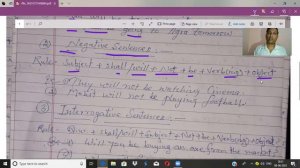 going to Agra tomorrow
(2) Negative Sentences:-
Rule- Subject + shall/will + Not + be + Verb(ing) + object
They will not be watching Cinema.
(2) Mohit will not be playing football.
(3) Interrogative Sentences:-
Rule- Q.w + shall/will + subject + Not + be + Verb(ing) + object
Will you be buying an axe from the market